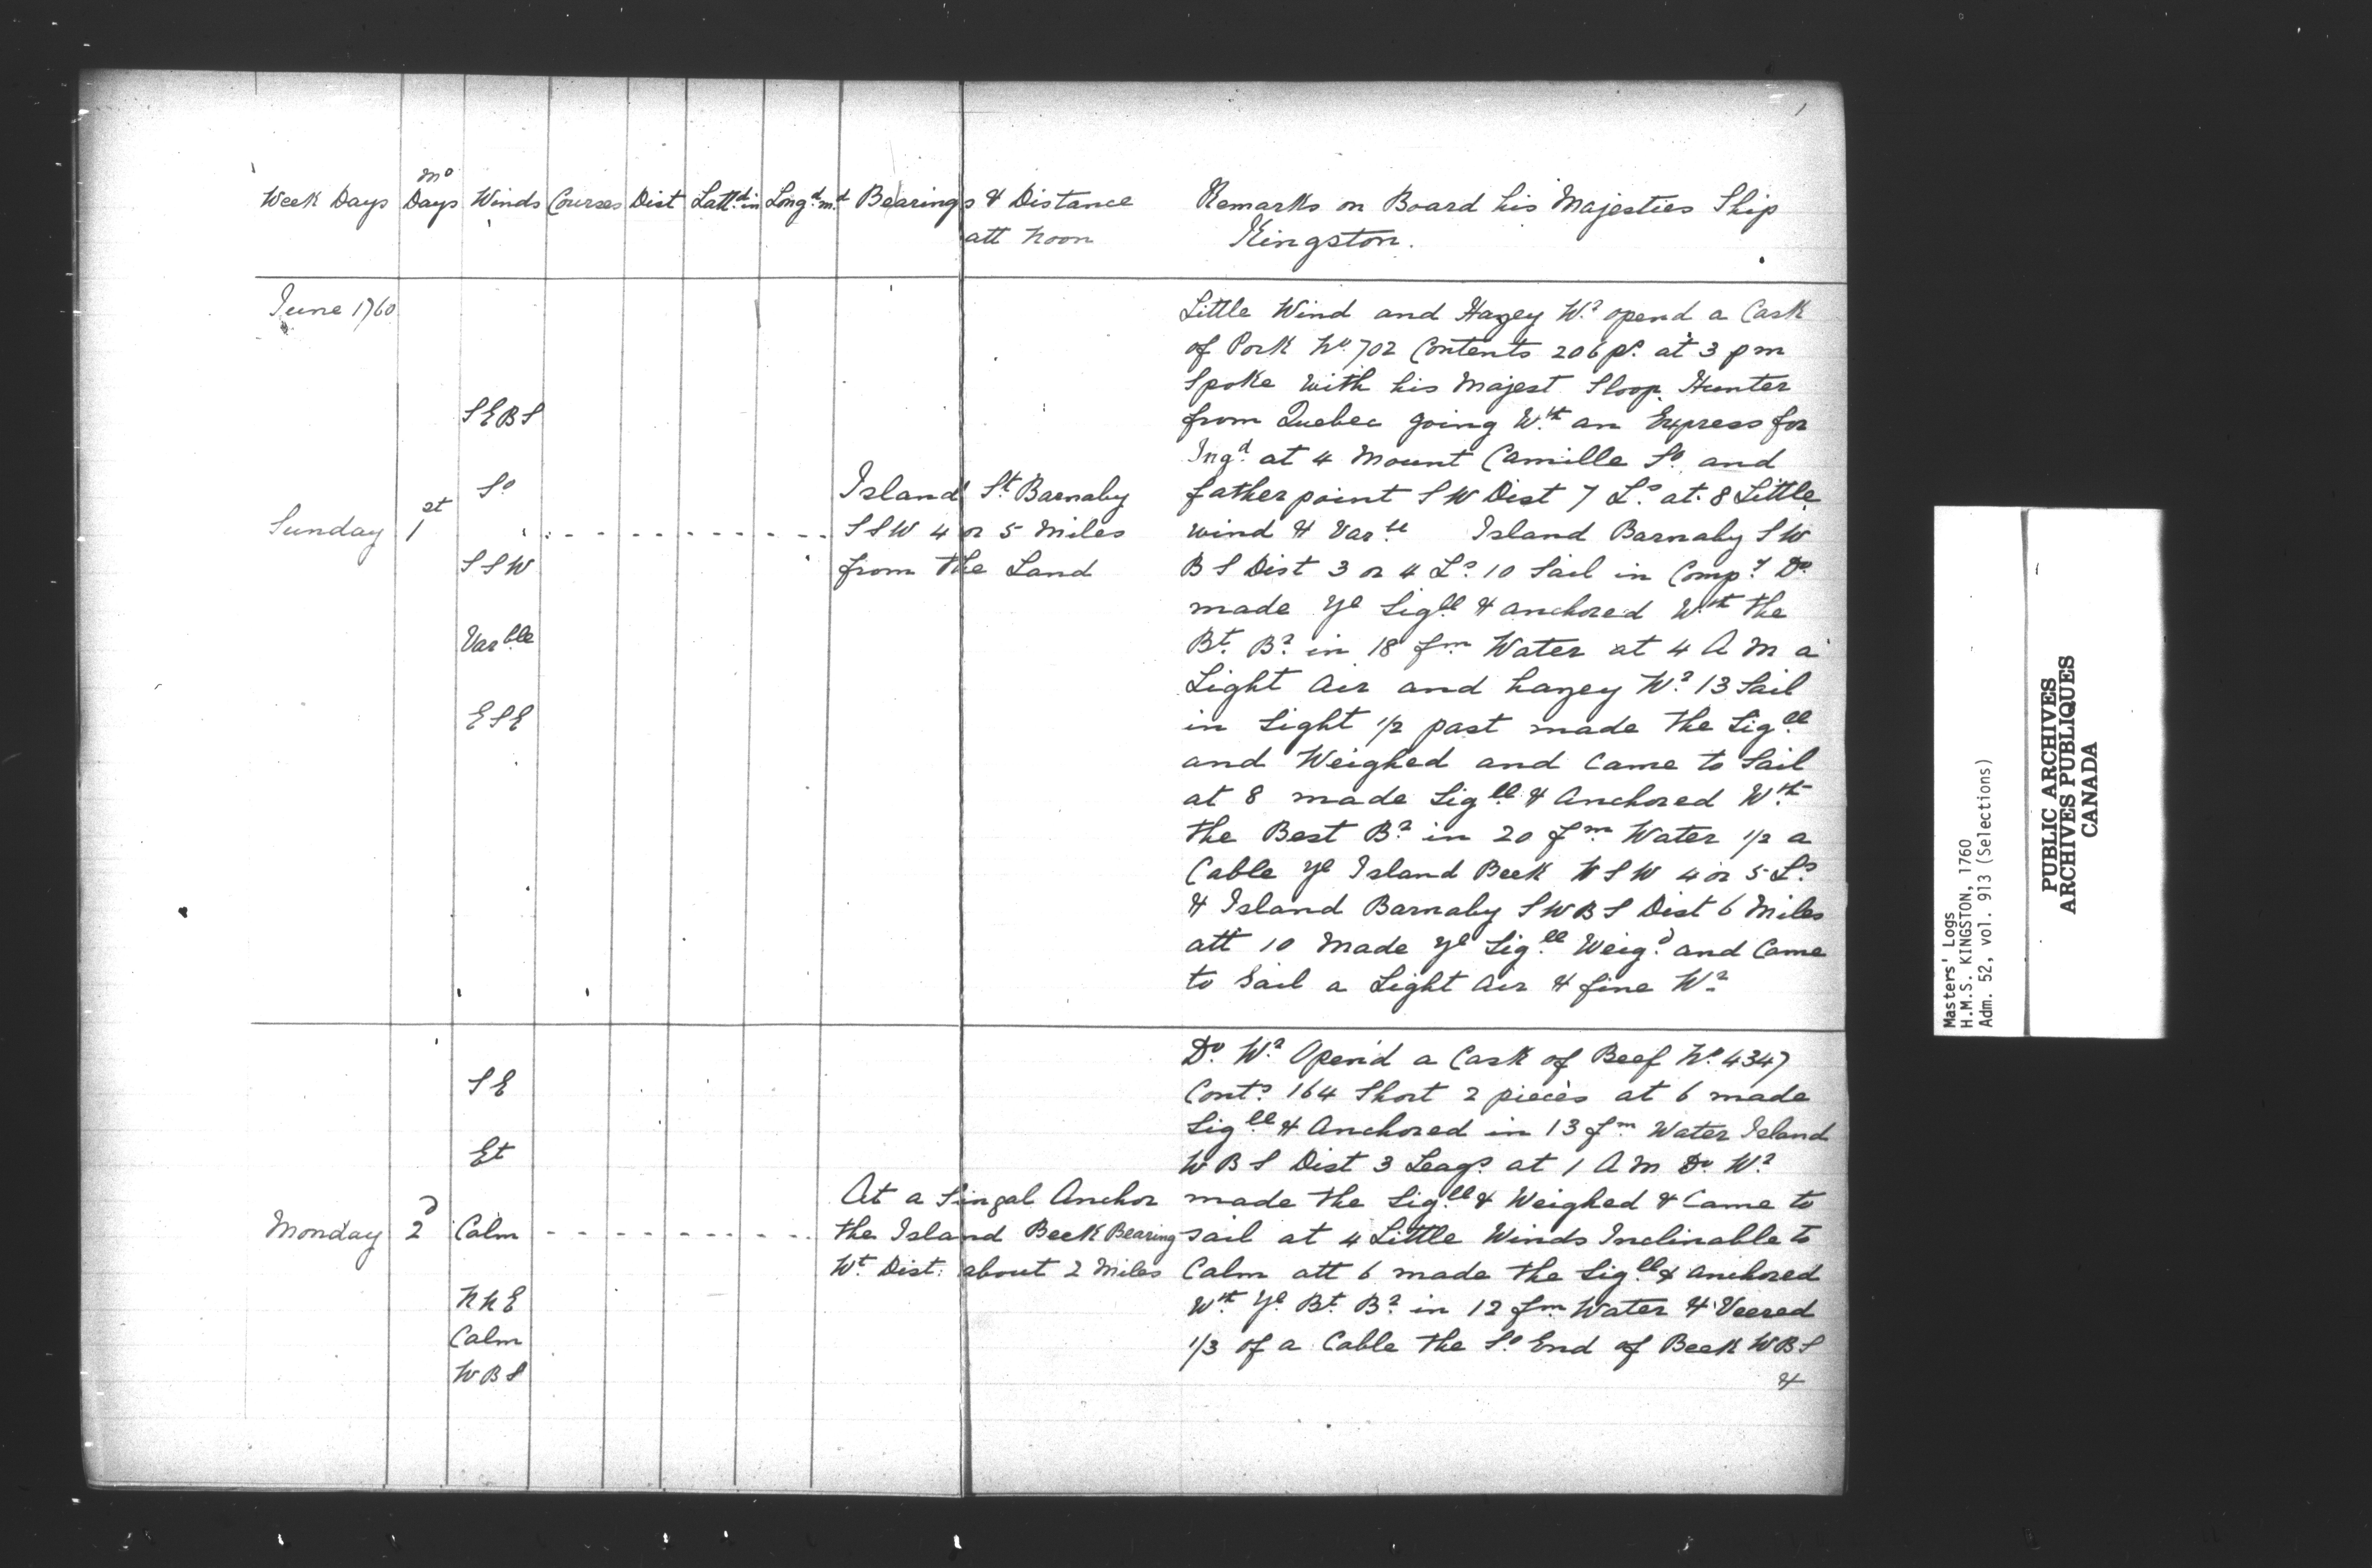 1
mo
Week Days Days Winds Courses Dist Lattd in Longd md Bearings & Distance
att noon
Remarks on Board his Majesties Ship
Kingston.
June 1760
Sunday 1st
SEBS
So
SSW
Varble
ESE
Island St Barnaby
SSW 4 or 5 Miles
from the Land
Little Wind and Hazey Wr opend a Cask
of Pork No. 702 Contents 206 ps. at 3 pm
Spoke with his Majest Sloop Hunter
from Quebec going Wth an Express for
Ingd. at 4 Mount Camille So. and
father point SW Dist 7 Ls. at 8 Little
wind & Varle Island Barnaby SW
BS Dist 3 or 4 Ls. 10 Sail in Compy Do
made ye Sigll & anchored Wth the
Bt. Br. in 18 fm Water at 4 A M a
Light Air and hazey Wr. 13 Sail
in Sight 1/2 past made the Sigll
and Weighed and Came to Sail
at 8 made Sigll & Anchored Wth
the Best Br. in 20 fm Water 1/2 a
Cable ye Island Beek WSW 4 or 5 Ls.
& Island Barnaby SWBS Dist 6 Miles
att 10 Made ye Sigll Weigd and Came
to Sail a Light Air & fine Wr
Monday 2d
SE
Et
Calm
NNE
Calm
WBS
At a Singal Anchor
the Island Beek Bearing
Wt Dist: about 2 Miles
Do. Wr. Opend a Cask of Beef No. 4347
Conts. 164 Short 2 pieces at 6 made
Sigll & Anchored in 13 fm Water Island
WBS Dist 3 Leags at 1 A M Do Wr
made the Sigll & Weighed & Came to
sail at 4 Little Winds Inclinable to
Calm att 6 made the Sigll & anchored
Wth ye Bt. Br. in 12 fm Water & Veered
1/3 of a Cable the So End of Beek WBS
&
Masters' Logs
H.M.S. KINGSTON, 1760
Adm. 52, vol. 913 (Selections)
PUBLIC ARCHIVES
ARCHIVES PUBLIQUES
CANADA